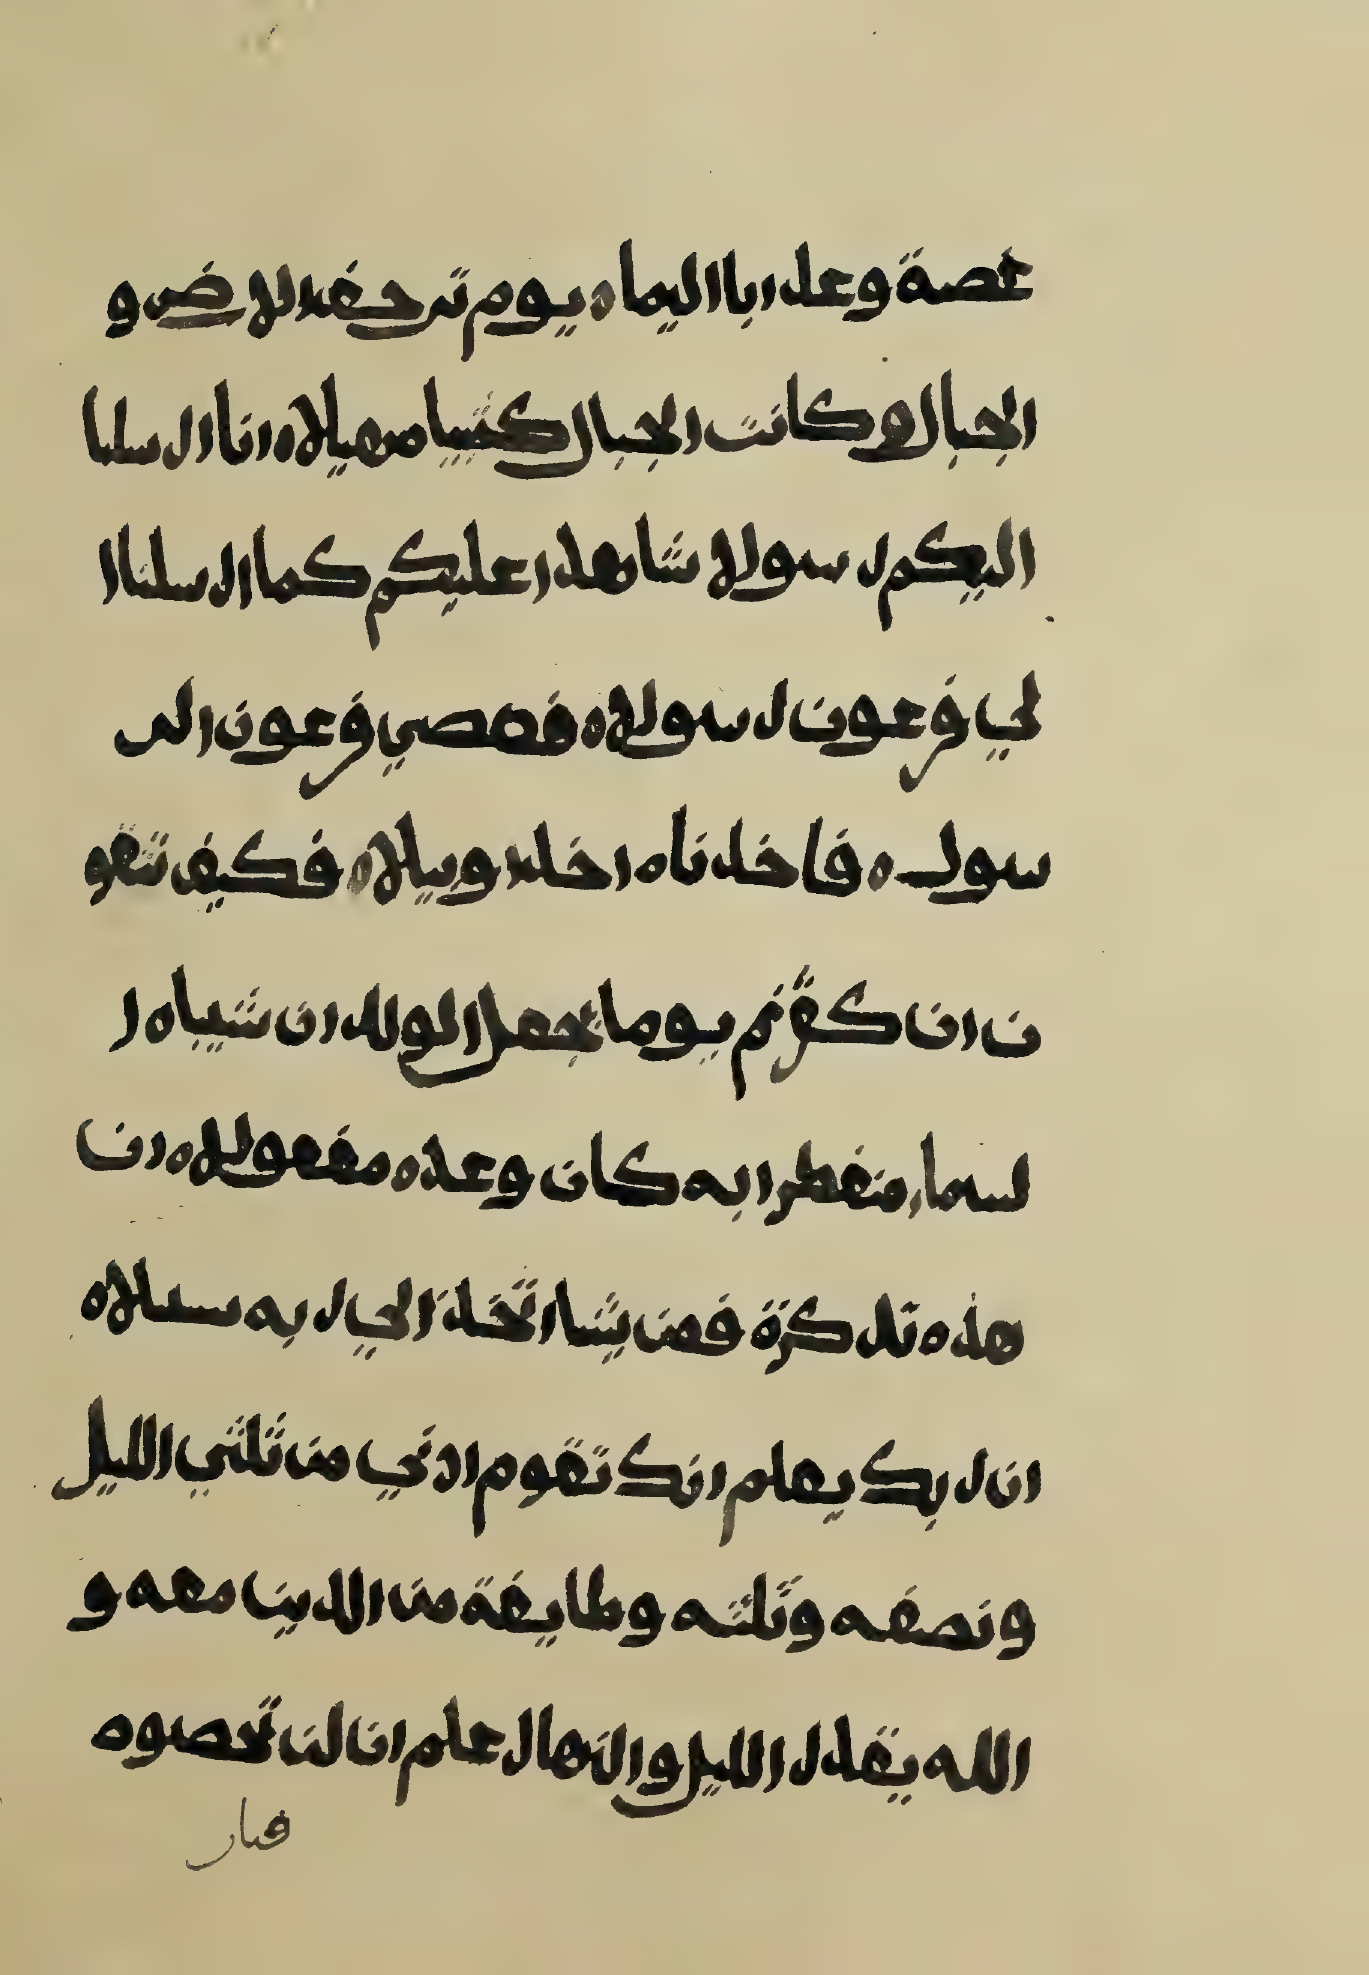 غصة وعذابا اليما ه يوم ترجف الارض و
الجبال وكانت الجبال كثيبا مهيلا ه انا ارسلنا
اليكم رسولا شاهدا عليكم كما ارسلنا ا
لي فرعون رسولا ه فعصي فرعون الر
سول ه فاخذناه اخذا وبيلا ه فكيف تتقو
ن ان كفرتم يوما يجعل الولدان شيبا ه ا
لسماء منفطر به كان وعده مفعولا ه ان
هذه تذكرة فمن شا اتخذ الي ربه سبيلا ه
ان ربك يعلم انك تقوم ادني من ثلثي الليل
ونصفه وثلثه وطايفة من الذين معه و
الله يقدر الليل والنهار علم ان لن تحصوه